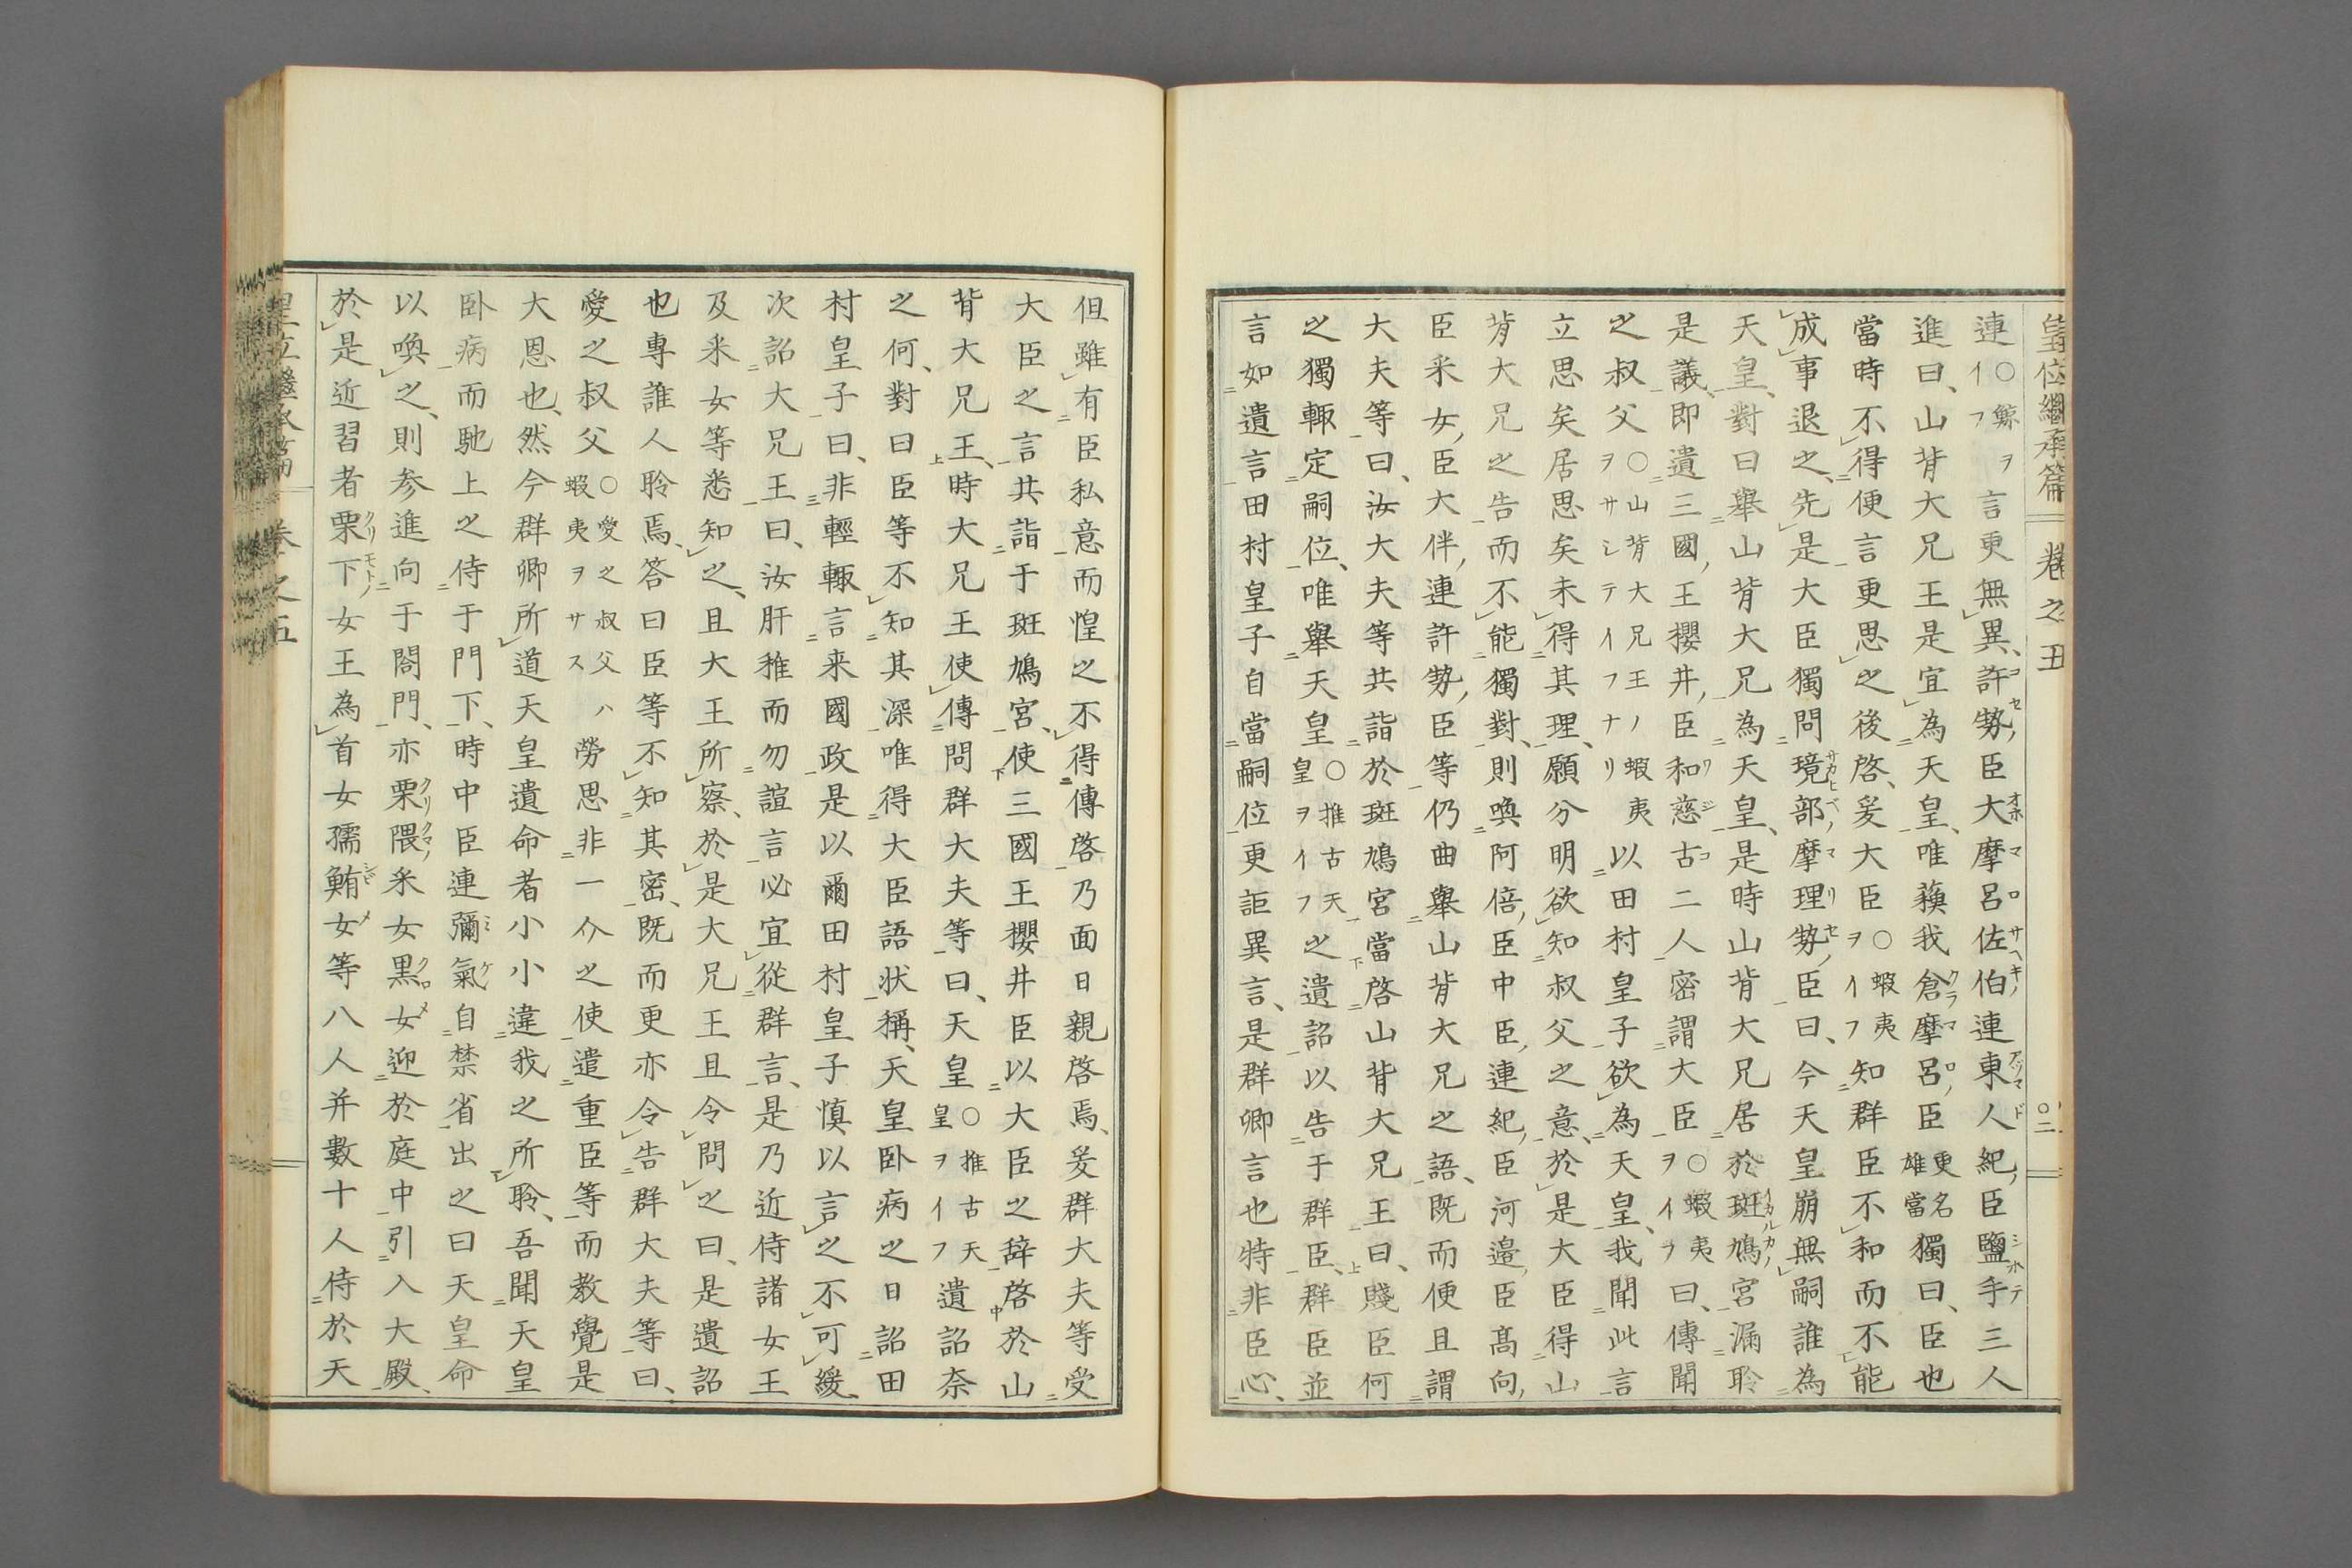 皇位繼承篇 卷之五
連○鯨ヲイフ言更無異、許勢臣大摩呂佐伯連東人紀臣鹽手三人
進曰、山背大兄王是宜為天皇、唯蘓我倉摩呂臣更名雄當獨曰、臣也
當時不得便言更思之後啓、爰大臣○蝦夷ヲイフ知群臣不和而不能
成事退之、先是大臣獨問境部摩理勢臣曰、今天皇崩無嗣誰為
天皇、對曰舉山背大兄為天皇、是時山背大兄居於斑鳩宮漏聆
是議、即遣三國王櫻井臣和慈古二人密謂大臣○蝦夷ヲイフ曰、傳聞
之叔父○山背大兄王ノ蝦夷ヲサシテイフナリ以田村皇子欲為天皇、我聞此言
立思矣居思矣未得其理、願分明欲知叔父之意、於是大臣得山
背大兄之告而不能獨對、則喚阿倍臣中臣連紀臣河邉臣髙向
臣釆女臣大伴連許勢臣等仍曲舉山背大兄之語、既而便且謂
大夫等曰、汝大夫等共詣於斑鳩宮當啓山背大兄王曰、賤臣何
之獨輙定嗣位、唯舉天皇○推古天皇ヲイフ之遺詔以告于群臣、群臣並
言如遺言田村皇子自當嗣位更詎異言、是群卿言也特非臣心、
但雖有臣私意而惶之不得傳啓乃面日親啓焉、爰群大夫等受
大臣之言共詣于斑鳩宮、使三國王櫻井臣以大臣之辞啓於山
背大兄王、時大兄王使傳問群大夫等曰、天皇○推古天皇ヲイフ遺詔奈
之何、對曰臣等不知其深唯得大臣語状稱、天皇臥病之日詔田
村皇子曰、非輕輙言来國政是以爾田村皇子慎以言之不可緩、
次詔大兄王曰、汝肝稚而勿諠言必宜從群言、是乃近侍諸女王
及釆女等悉知之、且大王所察、於是大兄王且令問之曰、是遺詔
也專誰人聆焉、答曰臣等不知其密、既而更亦令告群大夫等曰、
愛之叔父○愛之叔父ハ蝦夷ヲサス勞思非一介之使遣重臣等而教覺是
大恩也、然今群卿所道天皇遺命者小小違我之所聆、吾聞天皇
臥病而馳上之侍于門下、時中臣連彌氣自禁省出之曰天皇命
以喚之、則参進向于閤門、亦栗隈釆女黒女迎於庭中引入大殿、
於是近習者栗下女王為首女孺鮪女等八人并數十人侍於天